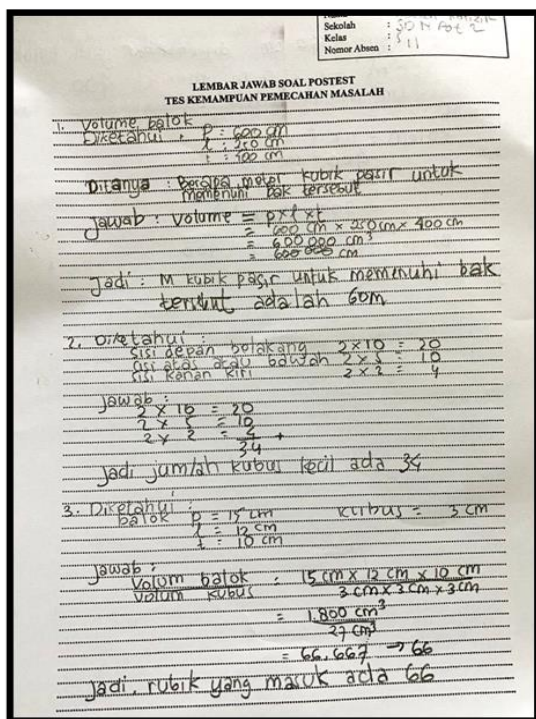 Sekolah :
Kelas :
Nomor Absen : 11
LEMBAR JAWAB SOAL POSTEST
TES KEMAMPUAN PEMECAHAN MASALAH
1. Volume balok
Diketahui : p : 600 cm
l : 250 cm
t : 400 cm
Ditanya : Berapa meter kubik pasir untuk
memenuhi bak tersebut
Jawab : Volume = p x l x t
= 600 cm x 250 cm x 400 cm
= 600 000 cm³
= 600000 cm
Jadi : M kubik pasir untuk memenuhi bak
tersebut adalah 60m
2. Diketahui :
sisi depan belakang 2 x 10 = 20
sisi atas atau bawah 2 x 5 = 10
sisi kanan kiri 2 x 2 = 4
Jawab :
2 x 10 = 20
2 x 5 = 10
2 x 2 = 4 +
34
Jadi jumlah kubus kecil ada 34
3. Diketahui :
balok p = 15 cm kubus = 3 cm
l = 12 cm
t = 10 cm
Jawab :
Volum balok : 15 cm x 12 cm x 10 cm
Volum kubus 3 cm x 3 cm x 3 cm
= 1.800 cm³
27 cm³
= 66,667 → 66
Jadi, rubik yang masuk ada 66